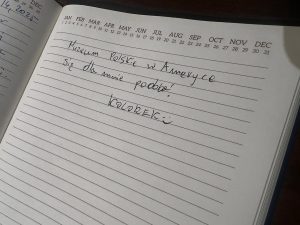 JAN FEB MAR APR MAY JUN JUL AUG SEP OCT NOV DEC
1 2 3 4 5 6 7 8 9 10 11 12 13 14 15 16 17 18 19 20 21 22 23 24 25 26 27 28 29 30 31
Muzeum Polskie w Ameryce
Się dla mnie podoba!